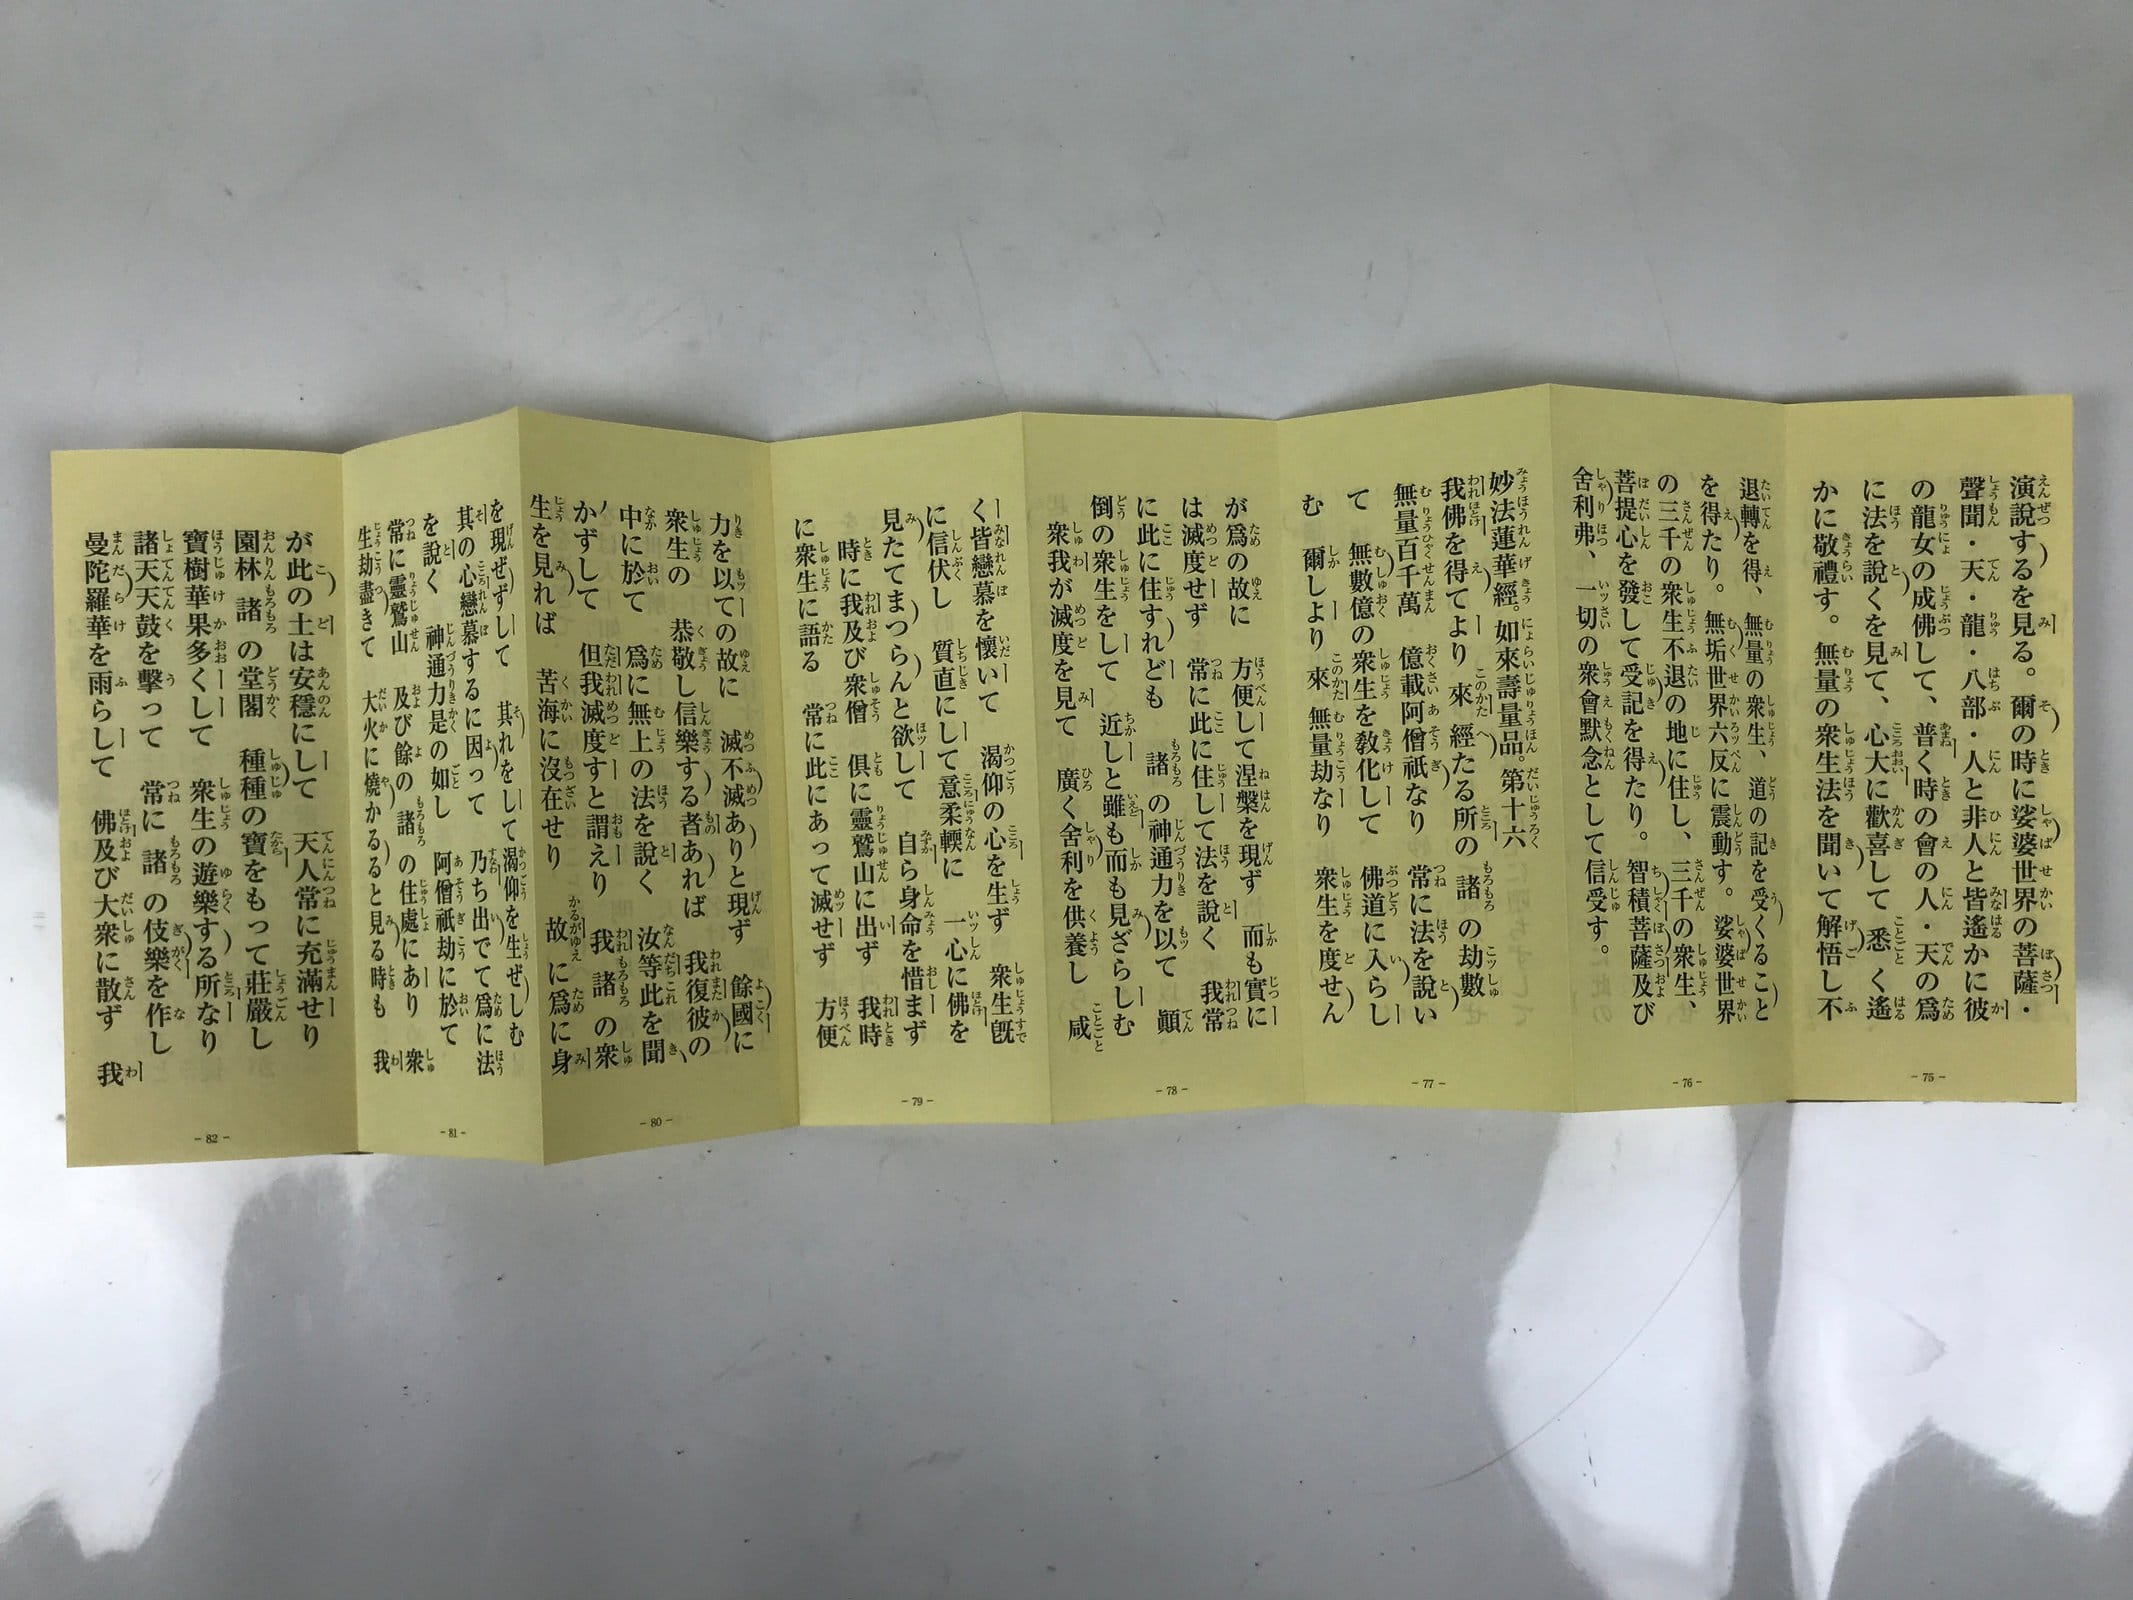 演説するを見る。爾の時に娑婆世界の菩薩・
聲聞・天・龍・八部・人と非人と皆遙かに彼
の龍女の成佛して、普く時の會の人・天の爲
に法を説くを見て、心大に歡喜して悉く遙
かに敬禮す。無量の衆生法を聞いて解悟し不
- 75 -
退轉を得、無量の衆生、道の記を受くること
を得たり。無垢世界六反に震動す。娑婆世界
の三千の衆生不退の地に住し、三千の衆生、
菩提心を發して受記を得たり。智積菩薩及び
舍利弗、一切の衆會默念として信受す。
- 76 -
妙法蓮華經。如來壽量品。第十六
我佛を得てより來 經たる所の 諸の劫數
無量百千萬 億載阿僧祇なり 常に法を説い
て 無數億の衆生を教化して 佛道に入らし
む 爾しより來 無量劫なり 衆生を度せん
- 77 -
が爲の故に 方便して涅槃を現ず 而も實に
は滅度せず 常に此に住して法を説く 我常
に此に住すれども 諸の神通力を以て 顚
倒の衆生をして 近しと雖も而も見ざらしむ
衆我が滅度を見て 廣く舍利を供養し 咸
- 78 -
く皆戀慕を懷いて 渴仰の心を生ず 衆生旣
に信伏し 質直にして意柔輭に 一心に佛を
見たてまつらんと欲して 自ら身命を惜まず
時に我及び衆僧 俱に靈鷲山に出ず 我時
に衆生に語る 常に此にあって滅せず 方便
- 79 -
力を以ての故に 滅不滅ありと現ず 餘國に
衆生の 恭敬し信樂する者あれば 我復彼の
中に於て 爲に無上の法を説く 汝等此を聞
かずして 但我滅度すと謂えり 我諸の衆
生を見れば 苦海に沒在せり 故に爲に身
- 80 -
を現ぜずして 其れをして渴仰を生ぜしむ
其の心戀慕するに因って 乃ち出でて爲に法
を説く 神通力是の如し 阿僧祇劫に於て
常に靈鷲山 及び餘の諸の住處にあり 衆
生劫盡きて 大火に燒かるると見る時も 我
- 81 -
が此の土は安穩にして 天人常に充滿せり
園林諸の堂閣 種種の寶をもって莊嚴し
寶樹華果多くして 衆生の遊樂する所なり
諸天天鼓を擊って 常に諸の伎樂を作し
曼陀羅華を雨らして 佛及び大衆に散ず 我
- 82 -